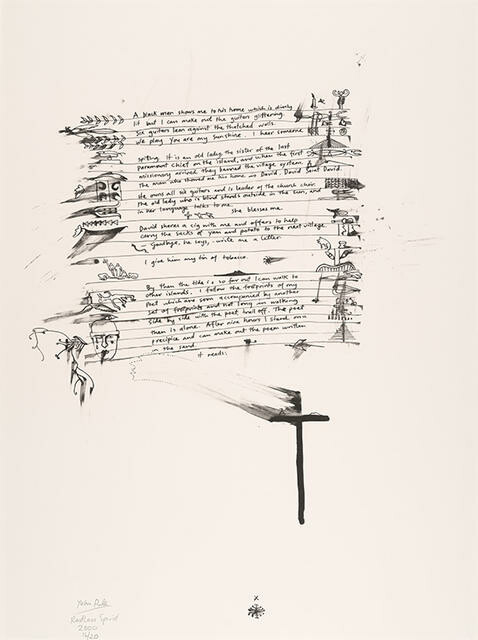 A black man shows me to his home which is dimly
lit but I can make out the guitars glittering.
Six guitars lean against the thatched walls.
We play You are my Sunshine. I hear someone
spitting. It is an old lady, the sister of the last
paramount chief on the island, and when the first
missionary arrived they banned the village system.
The man who showed me his home is David. David Saint David.
He owns all six guitars and is leader of the church choir.
The old lady who is blind stands outside in the sun, and
in her language talks to me.
she blesses me.
David shares a cig with me and offers to help
carry the sacks of yam and potato to the next village.
Goodbye, he says, write me a letter
I give him my tin of tobacco.
By then the tide is so far out I can walk to
other islands. I follow the footprints of my
poet which are soon accompanied by another
set of footprints and not long in walking
side by side with the poet trail off. The poet
then is alone. After nine hours I stand on a
precipice and can make out the poem written
in the sand.
it reads:
x
Restless Spirit
2000